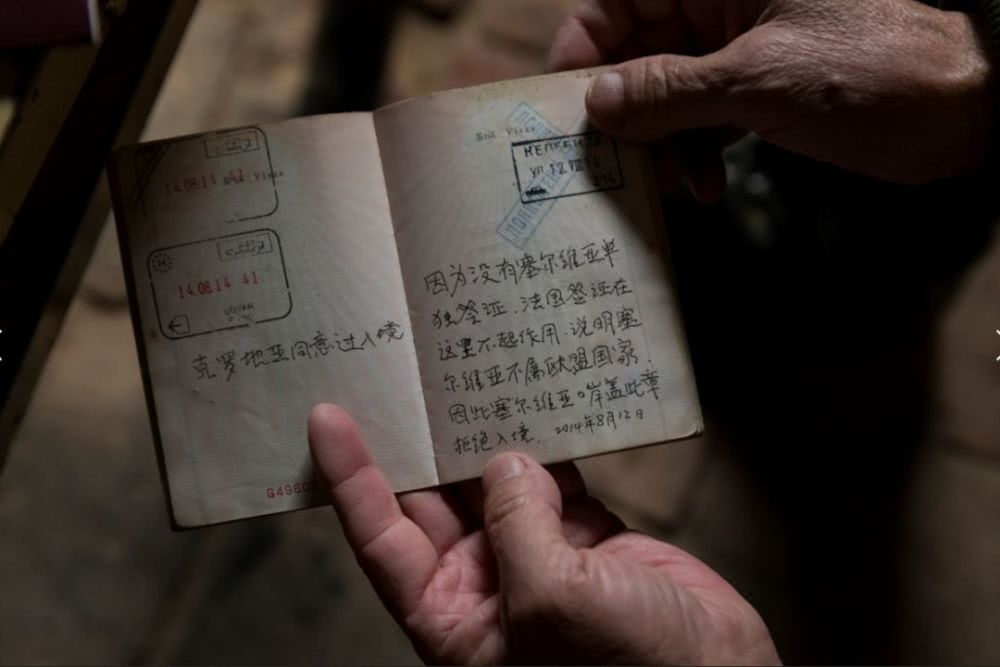 14.08.14 41
14.08.14 41
克罗地亚同意过入境
G4960
因为没有塞尔维亚单
独签证.法国签证在
这里不起作用.说明塞
尔维亚不属欧盟国家.
因此塞尔维亚口岸盖此章
拒绝入境. 2014年8月12日